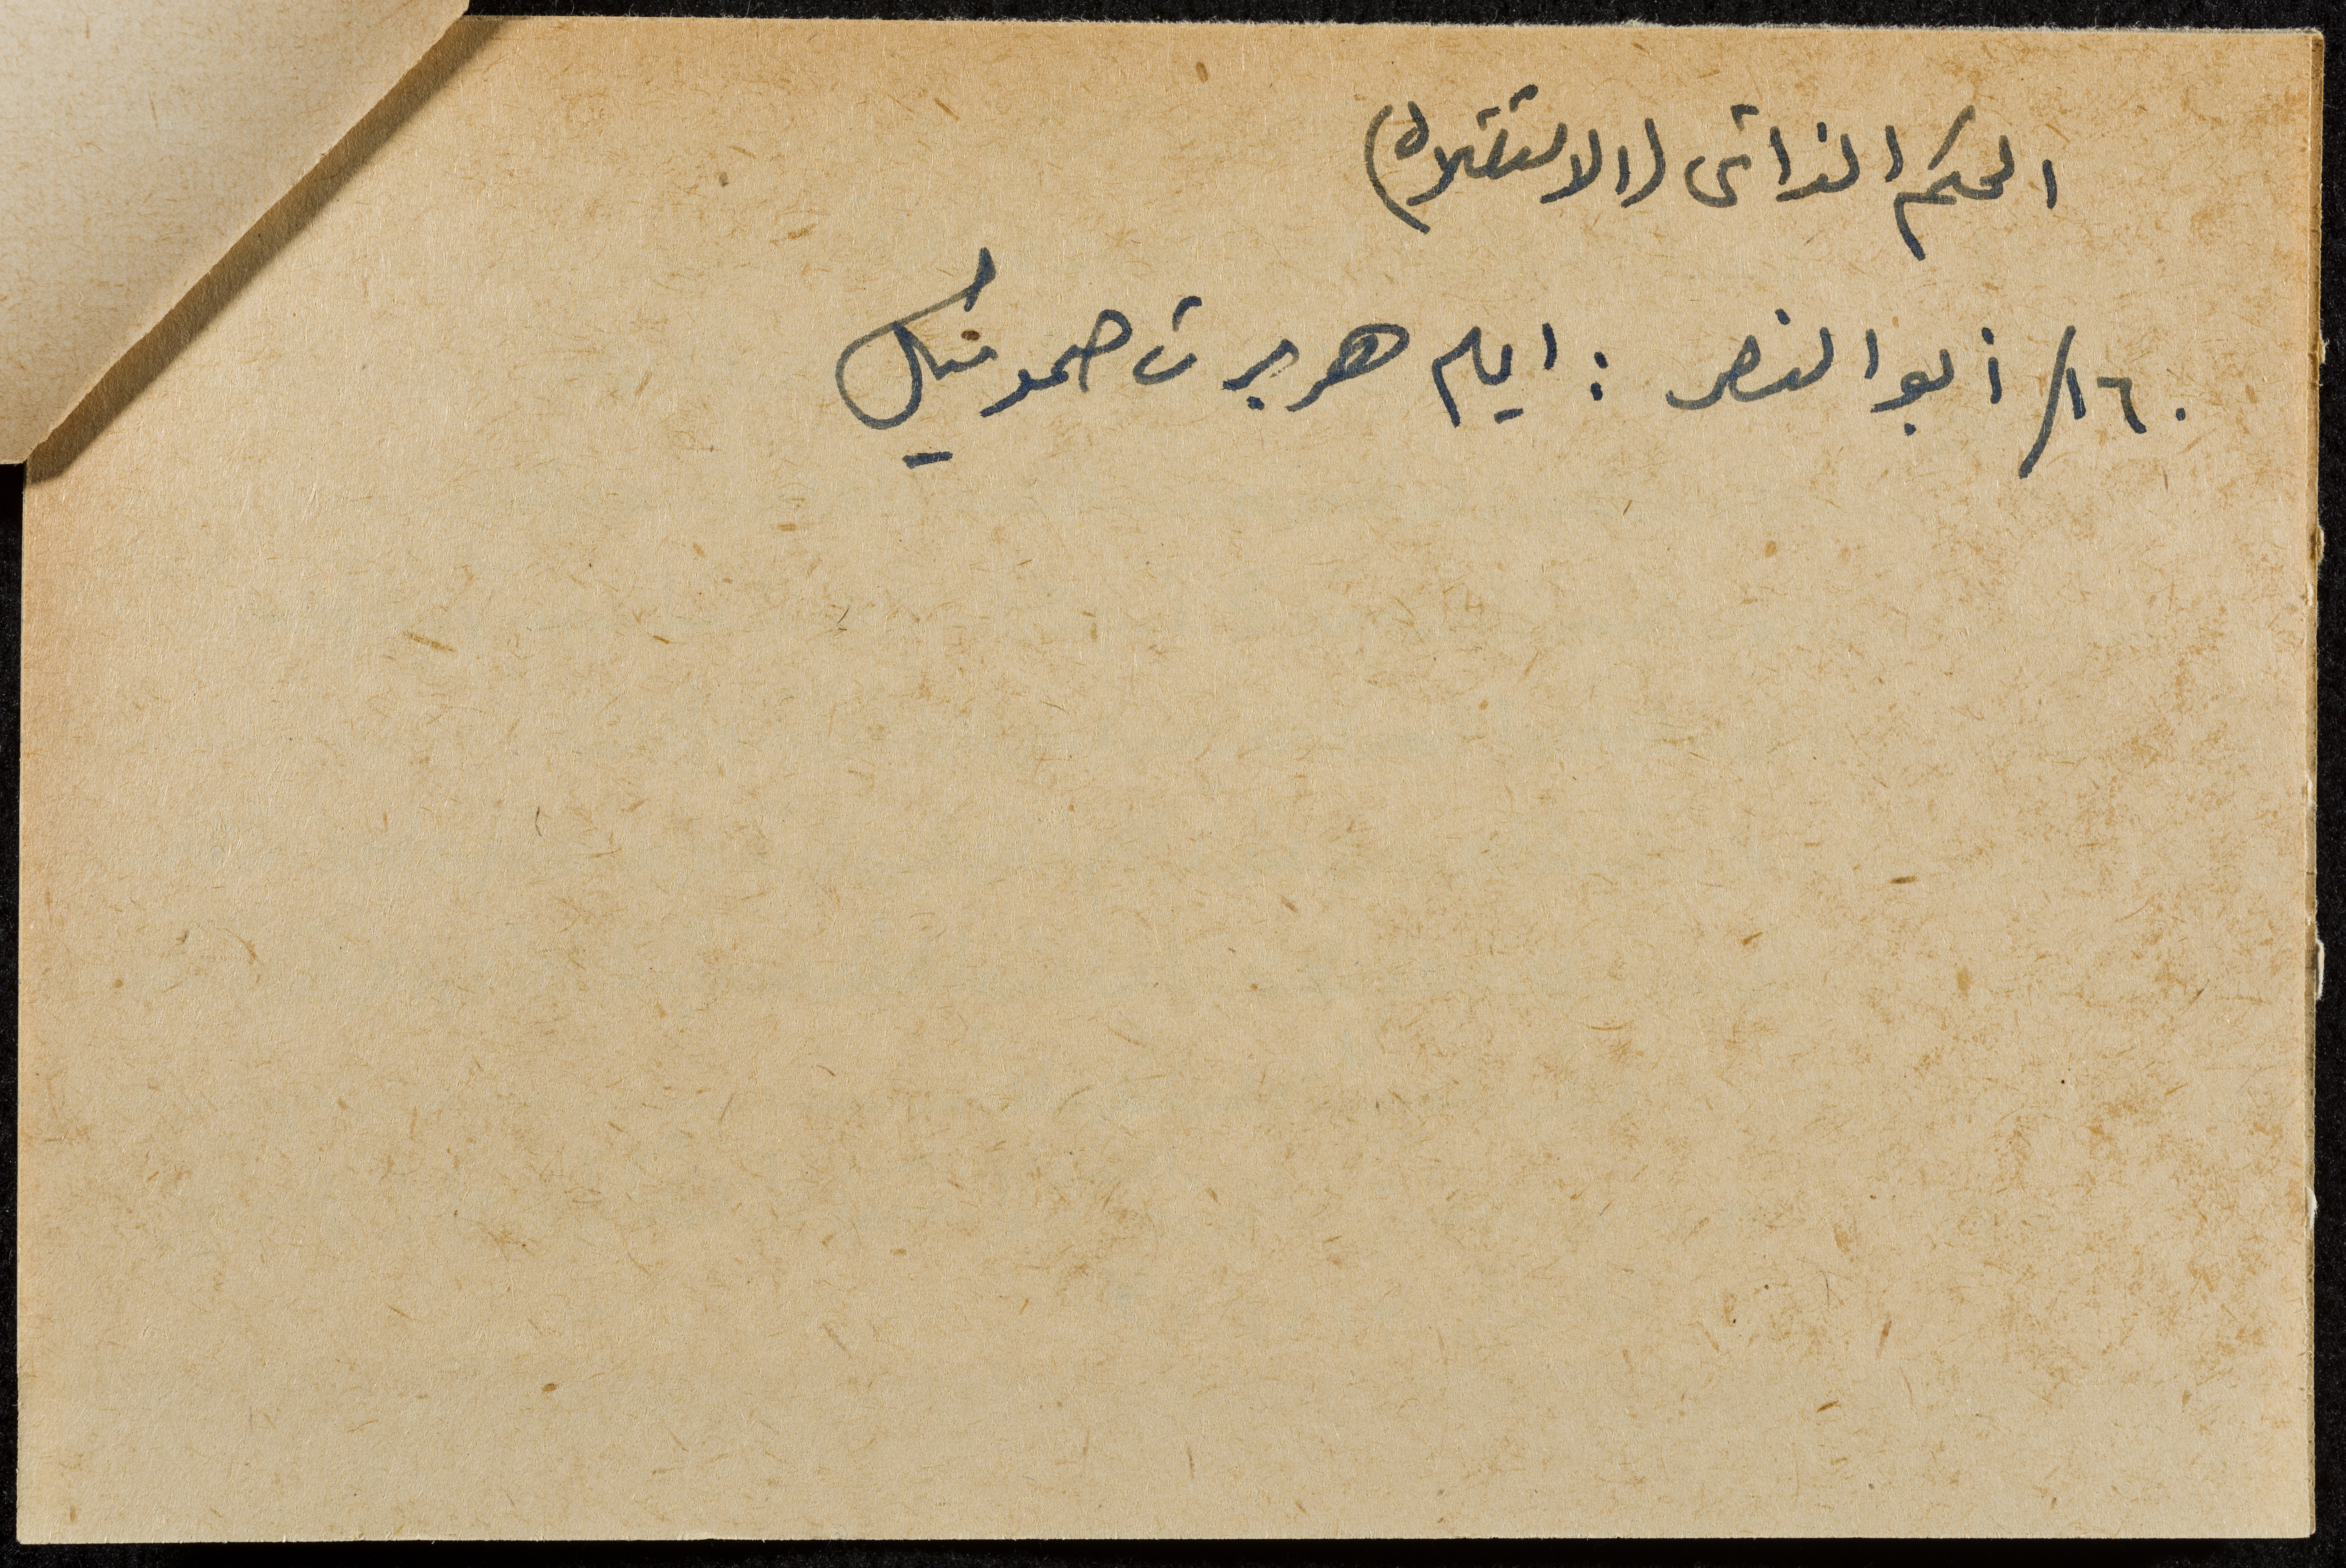 الحكم الذاتى (الاستقلال)
١٦٠/ أبو النصر : ايام هربرت صموئيل